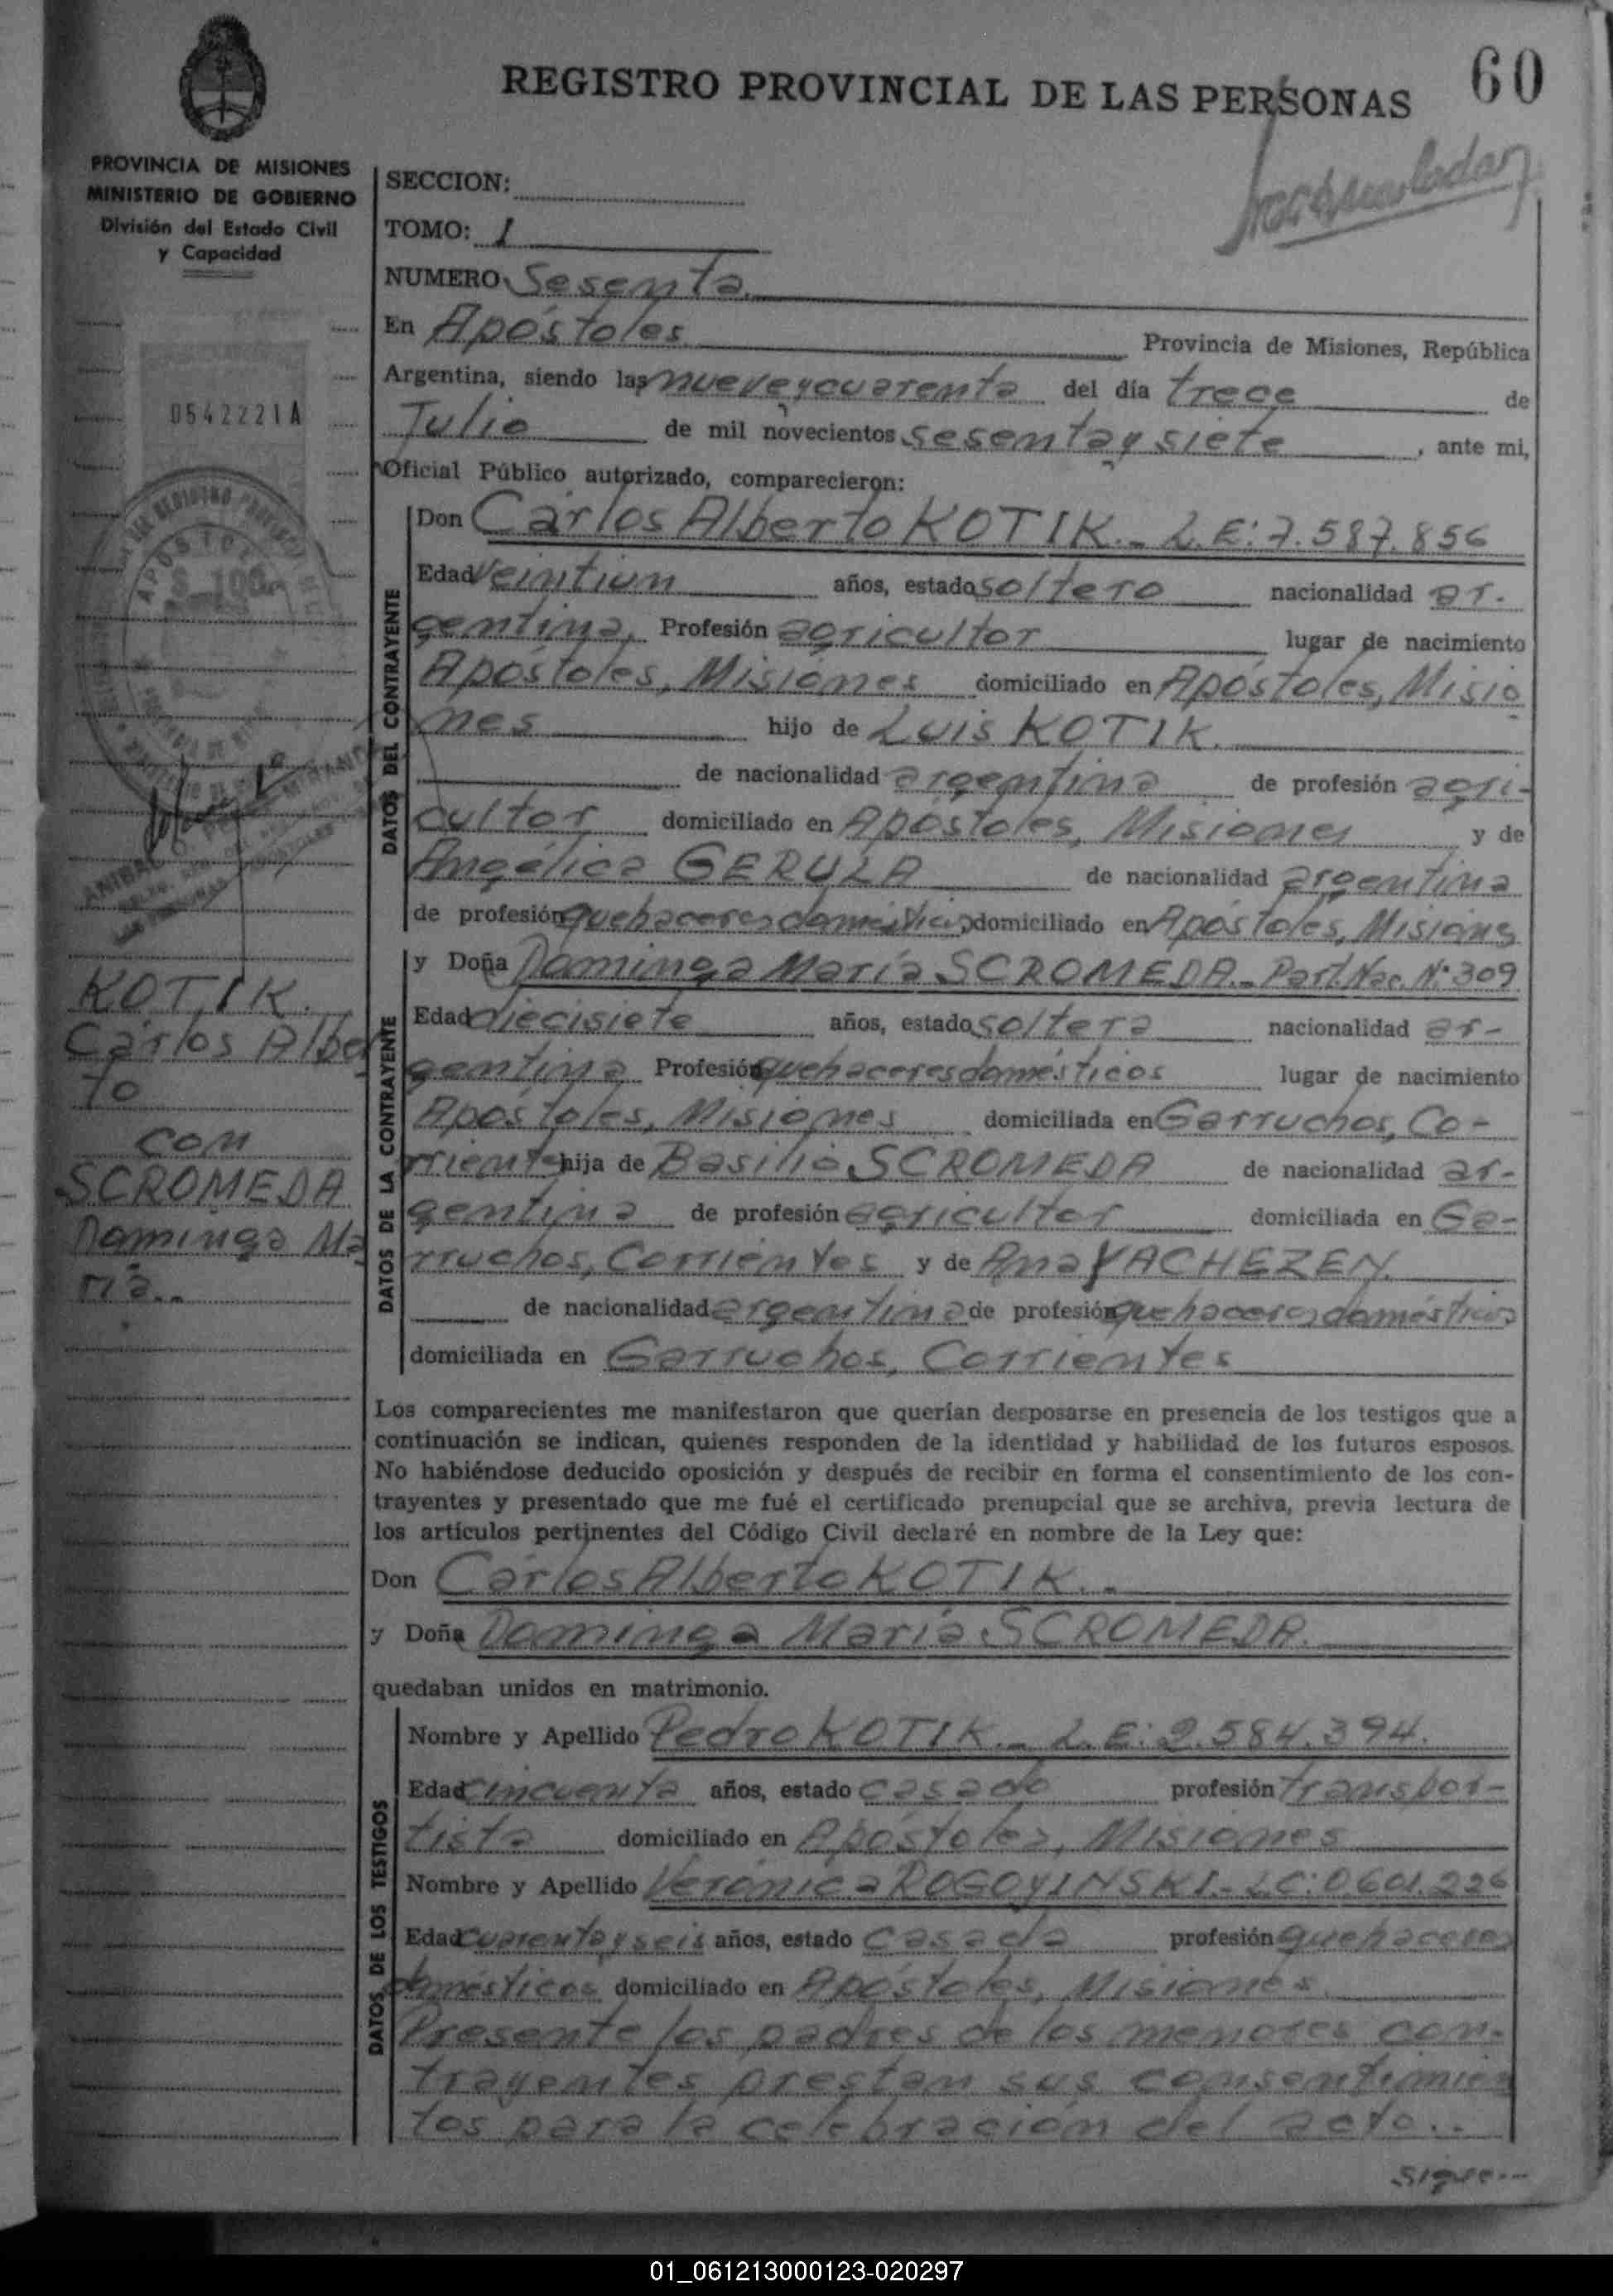 60
REGISTRO PROVINCIAL DE LAS PERSONAS
PROVINCIA DE MISIONES
MINISTERIO DE GOBIERNO
División del Estado Civil
y Capacidad
0542221A
SECCION:
TOMO: 1
NUMERO Sesenta.
En Apóstoles Provincia de Misiones, República
Argentina, siendo las nueve y cuarenta del día trece de
Julio de mil novecientos sesenta y siete, ante mi,
Oficial Público autorizado, comparecieron:
DATOS DEL CONTRAYENTE
Don Carlos Alberto KOTIK.- L.E: 7.587.856
Edad veintiun años, estado soltero nacionalidad ar-
gentina, Profesión agricultor lugar de nacimiento
Apóstoles, Misiones domiciliado en Apóstoles, Misio
nes hijo de Luis KOTIK.
de nacionalidad argentina de profesión agri-
cultor domiciliado en Apóstoles, Misiones y de
Angélica GERULA de nacionalidad argentina
de profesión quehaceres domésticos domiciliado en Apóstoles, Misiones
DATOS DE LA CONTRAYENTE
y Doña Dominga María SCROMEDA.- Part. Nac. N° 309
Edad diecisiete años, estado soltera nacionalidad ar-
gentina Profesión quehaceres domésticos lugar de nacimiento
Apóstoles, Misiones domiciliada en Garruchos, Co-
rrientes hija de Basilio SCROMEDA de nacionalidad ar-
gentina de profesión agricultor domiciliada en Ga-
rruchos, Corrientes y de Ana YACHEZEN.
de nacionalidad argentina de profesión quehaceres domésticos
domiciliada en Garruchos, Corrientes
KOTIK.
Carlos Alber
to
con
SCROMEDA
Dominga Ma
ría..
Los comparecientes me manifestaron que querían desposarse en presencia de los testigos que a
continuación se indican, quienes responden de la identidad y habilidad de los futuros esposos.
No habiéndose deducido oposición y después de recibir en forma el consentimiento de los con-
trayentes y presentado que me fué el certificado prenupcial que se archiva, previa lectura de
los artículos pertinentes del Código Civil declaré en nombre de la Ley que:
Don Carlos Alberto KOTIK.-
y Doña Dominga María SCROMEDA.
quedaban unidos en matrimonio.
DATOS DE LOS TESTIGOS
Nombre y Apellido Pedro KOTIK.- L.E: 2.584.394.
Edad cincuenta años, estado casado profesión transpor-
tista domiciliado en Apóstoles, Misiones
Nombre y Apellido Verónica ROGOYINSKI.- L.C: 0.601.226
Edad cuarenta y seis años, estado casada profesión quehaceres
domésticos domiciliado en Apóstoles, Misiones.
Presente los padres de los menores con-
trayentes prestan sus consentimien
tos para la celebración del acto..
sigue---
01_061213000123-020297